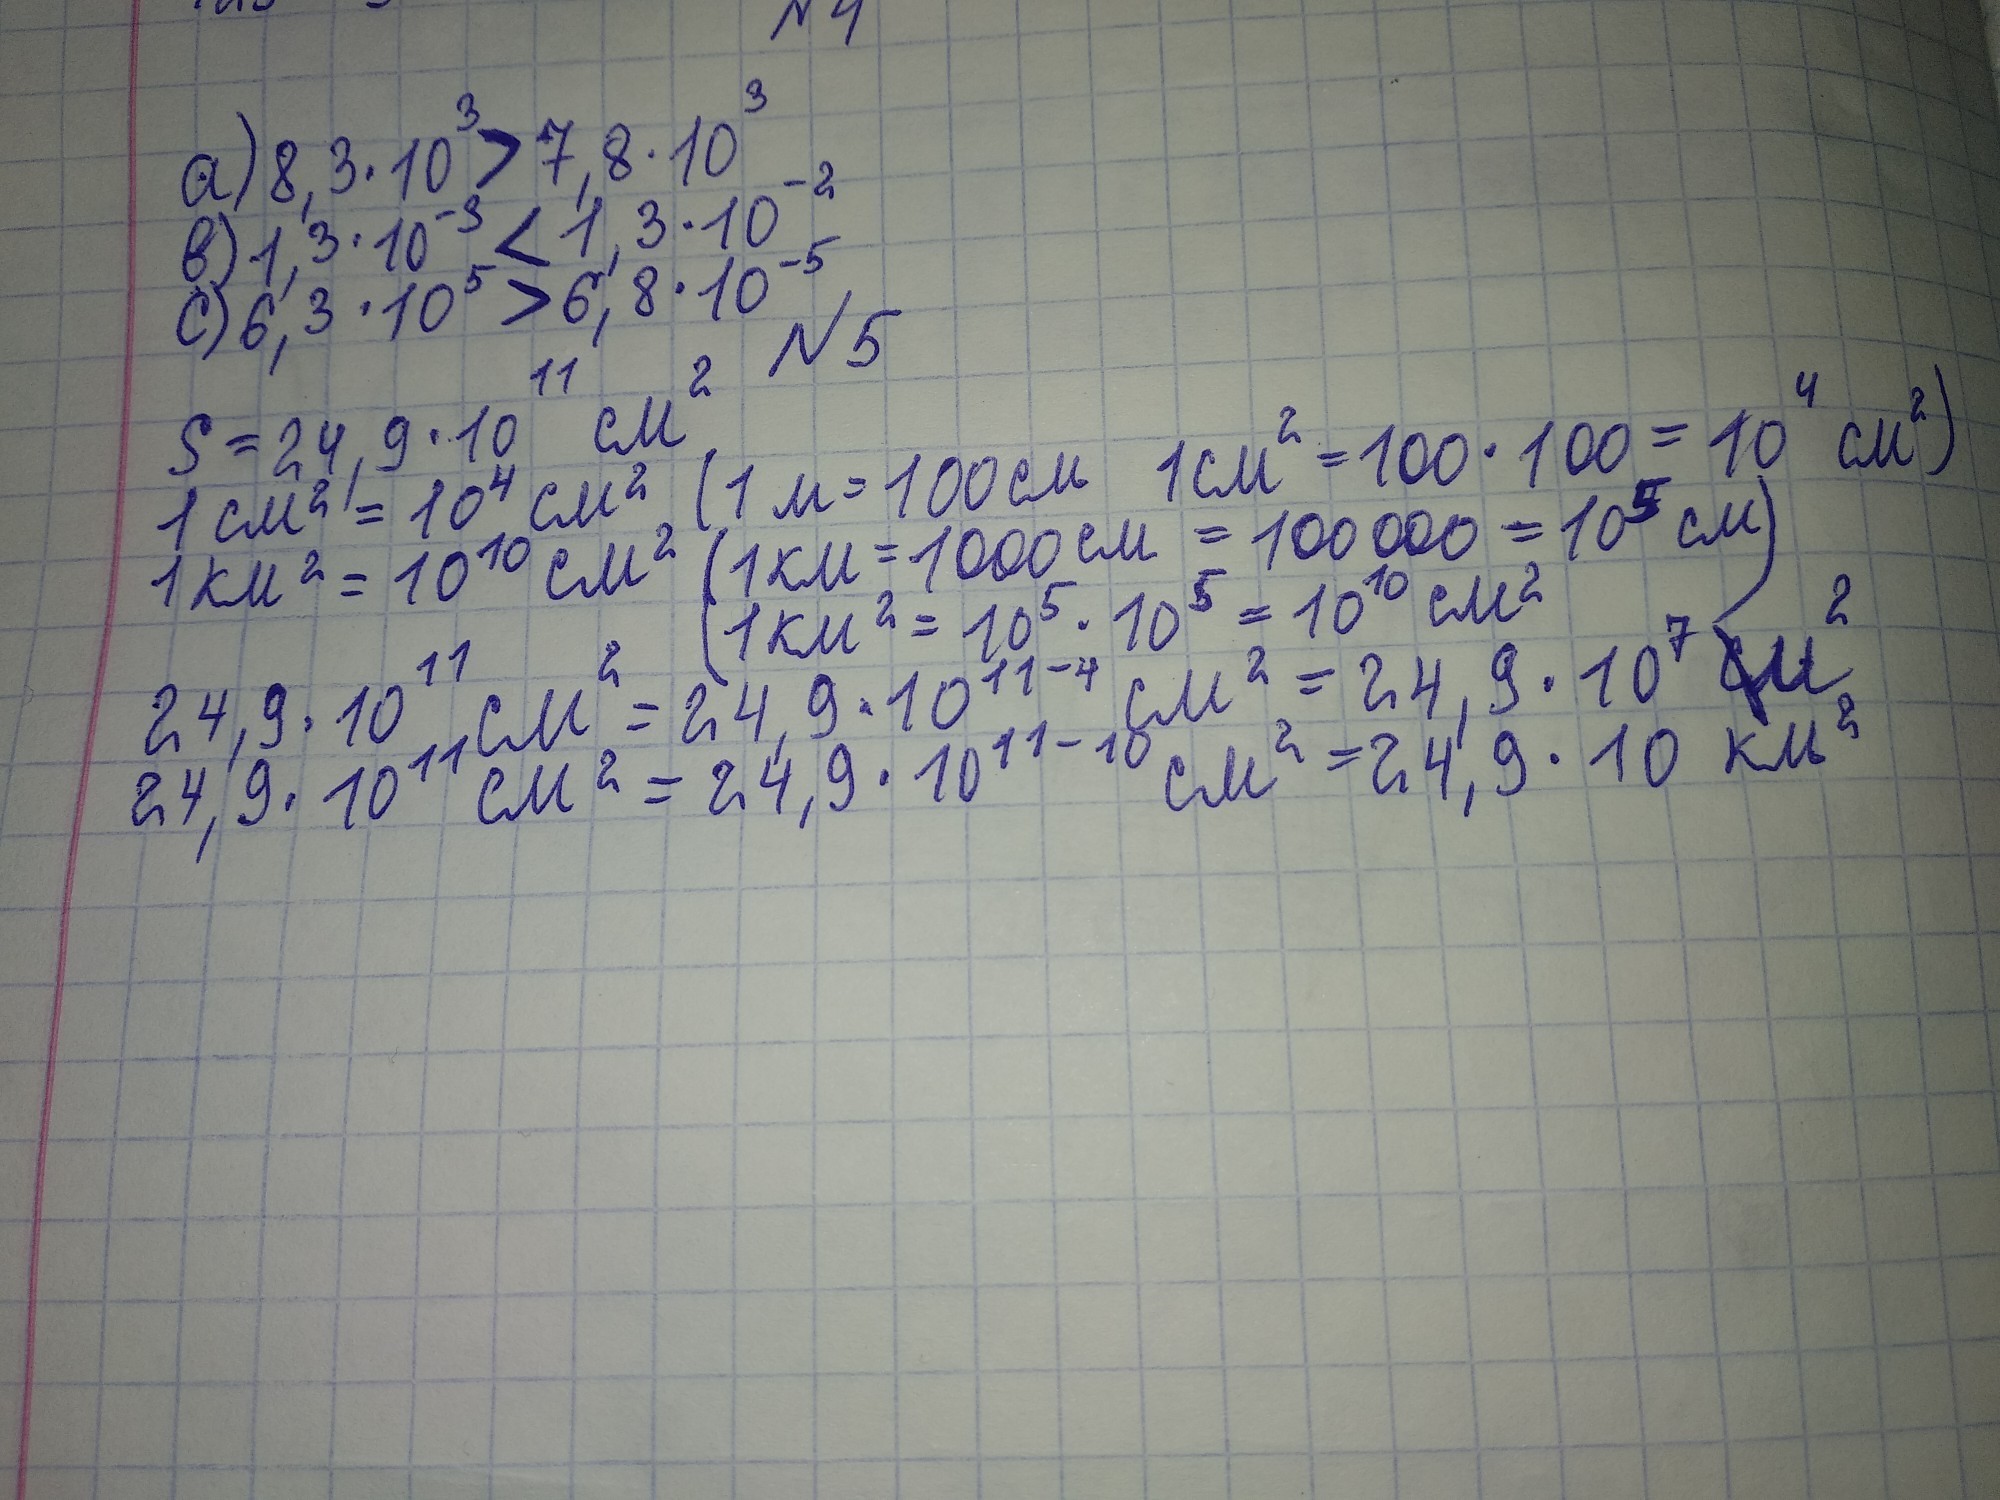 N4
a) 8,3·10³ > 7,8·10³
в) 1,3·10⁻³ < 1,3·10⁻²
c) 6,3·10⁵ > 6,8·10⁻⁵
N5
S = 24,9·10¹¹ см²
1 см² = 10⁴ см² (1 м = 100 см 1 см² = 100·100 = 10⁴ см²)
1 км² = 10¹⁰ см² (1 км = 1000 см = 100 000 = 10⁵ см)
(1 км² = 10⁵·10⁵ = 10¹⁰ см²
24,9·10¹¹ см² = 24,9·10¹¹⁻⁴ см² = 24,9·10⁷ см²
24,9·10¹¹ см² = 24,9·10¹¹⁻¹⁰ см² = 24,9·10 км²